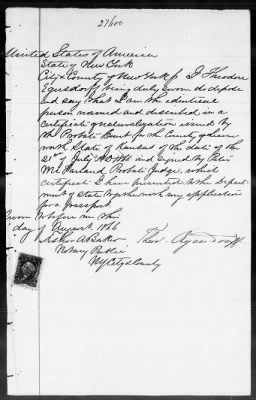 27600
United States of America
State of New York
City & County of New York ss I Theodore
Egersdorff being duly sworn do depose
and say that I am the identical
person named and described in a
certificate of naturalization issued by
the Probate Court for the County of Leaven
worth State of Kansas of the date of the
21st of July AD 1866 and signed by Peter
McFarland Probate Judge, which
certificate I have presented to the Depart-
ment of State together with my application
for a passport.
Sworn to before me this
day of August. 1866
Theo.
Baker
Notary Public
NY City & County